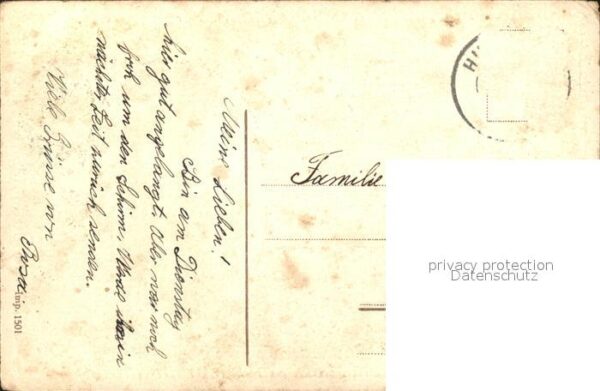 Meine Lieben!
Bin am Dienstag
hier gut angelangt. Aber war noch
froh um den Schirm. Werde ihn in
nächster Zeit zurück senden.
Viele Grüsse von
Rosa
imp. 1501
Familie
privacy protection
Datenschutz